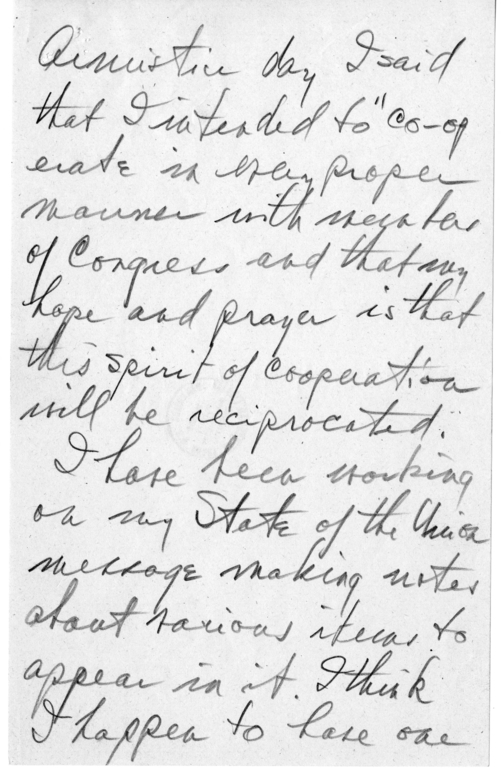 Armistice day I said
that I intended to "co-op
erate in every proper
manner with members
of Congress and that my
hope and prayer is that
this spirit of cooperation
will be reciprocated."
I have been working
on my State of the Union
message making notes
about various items to
appear in it. I think
I happen to have one